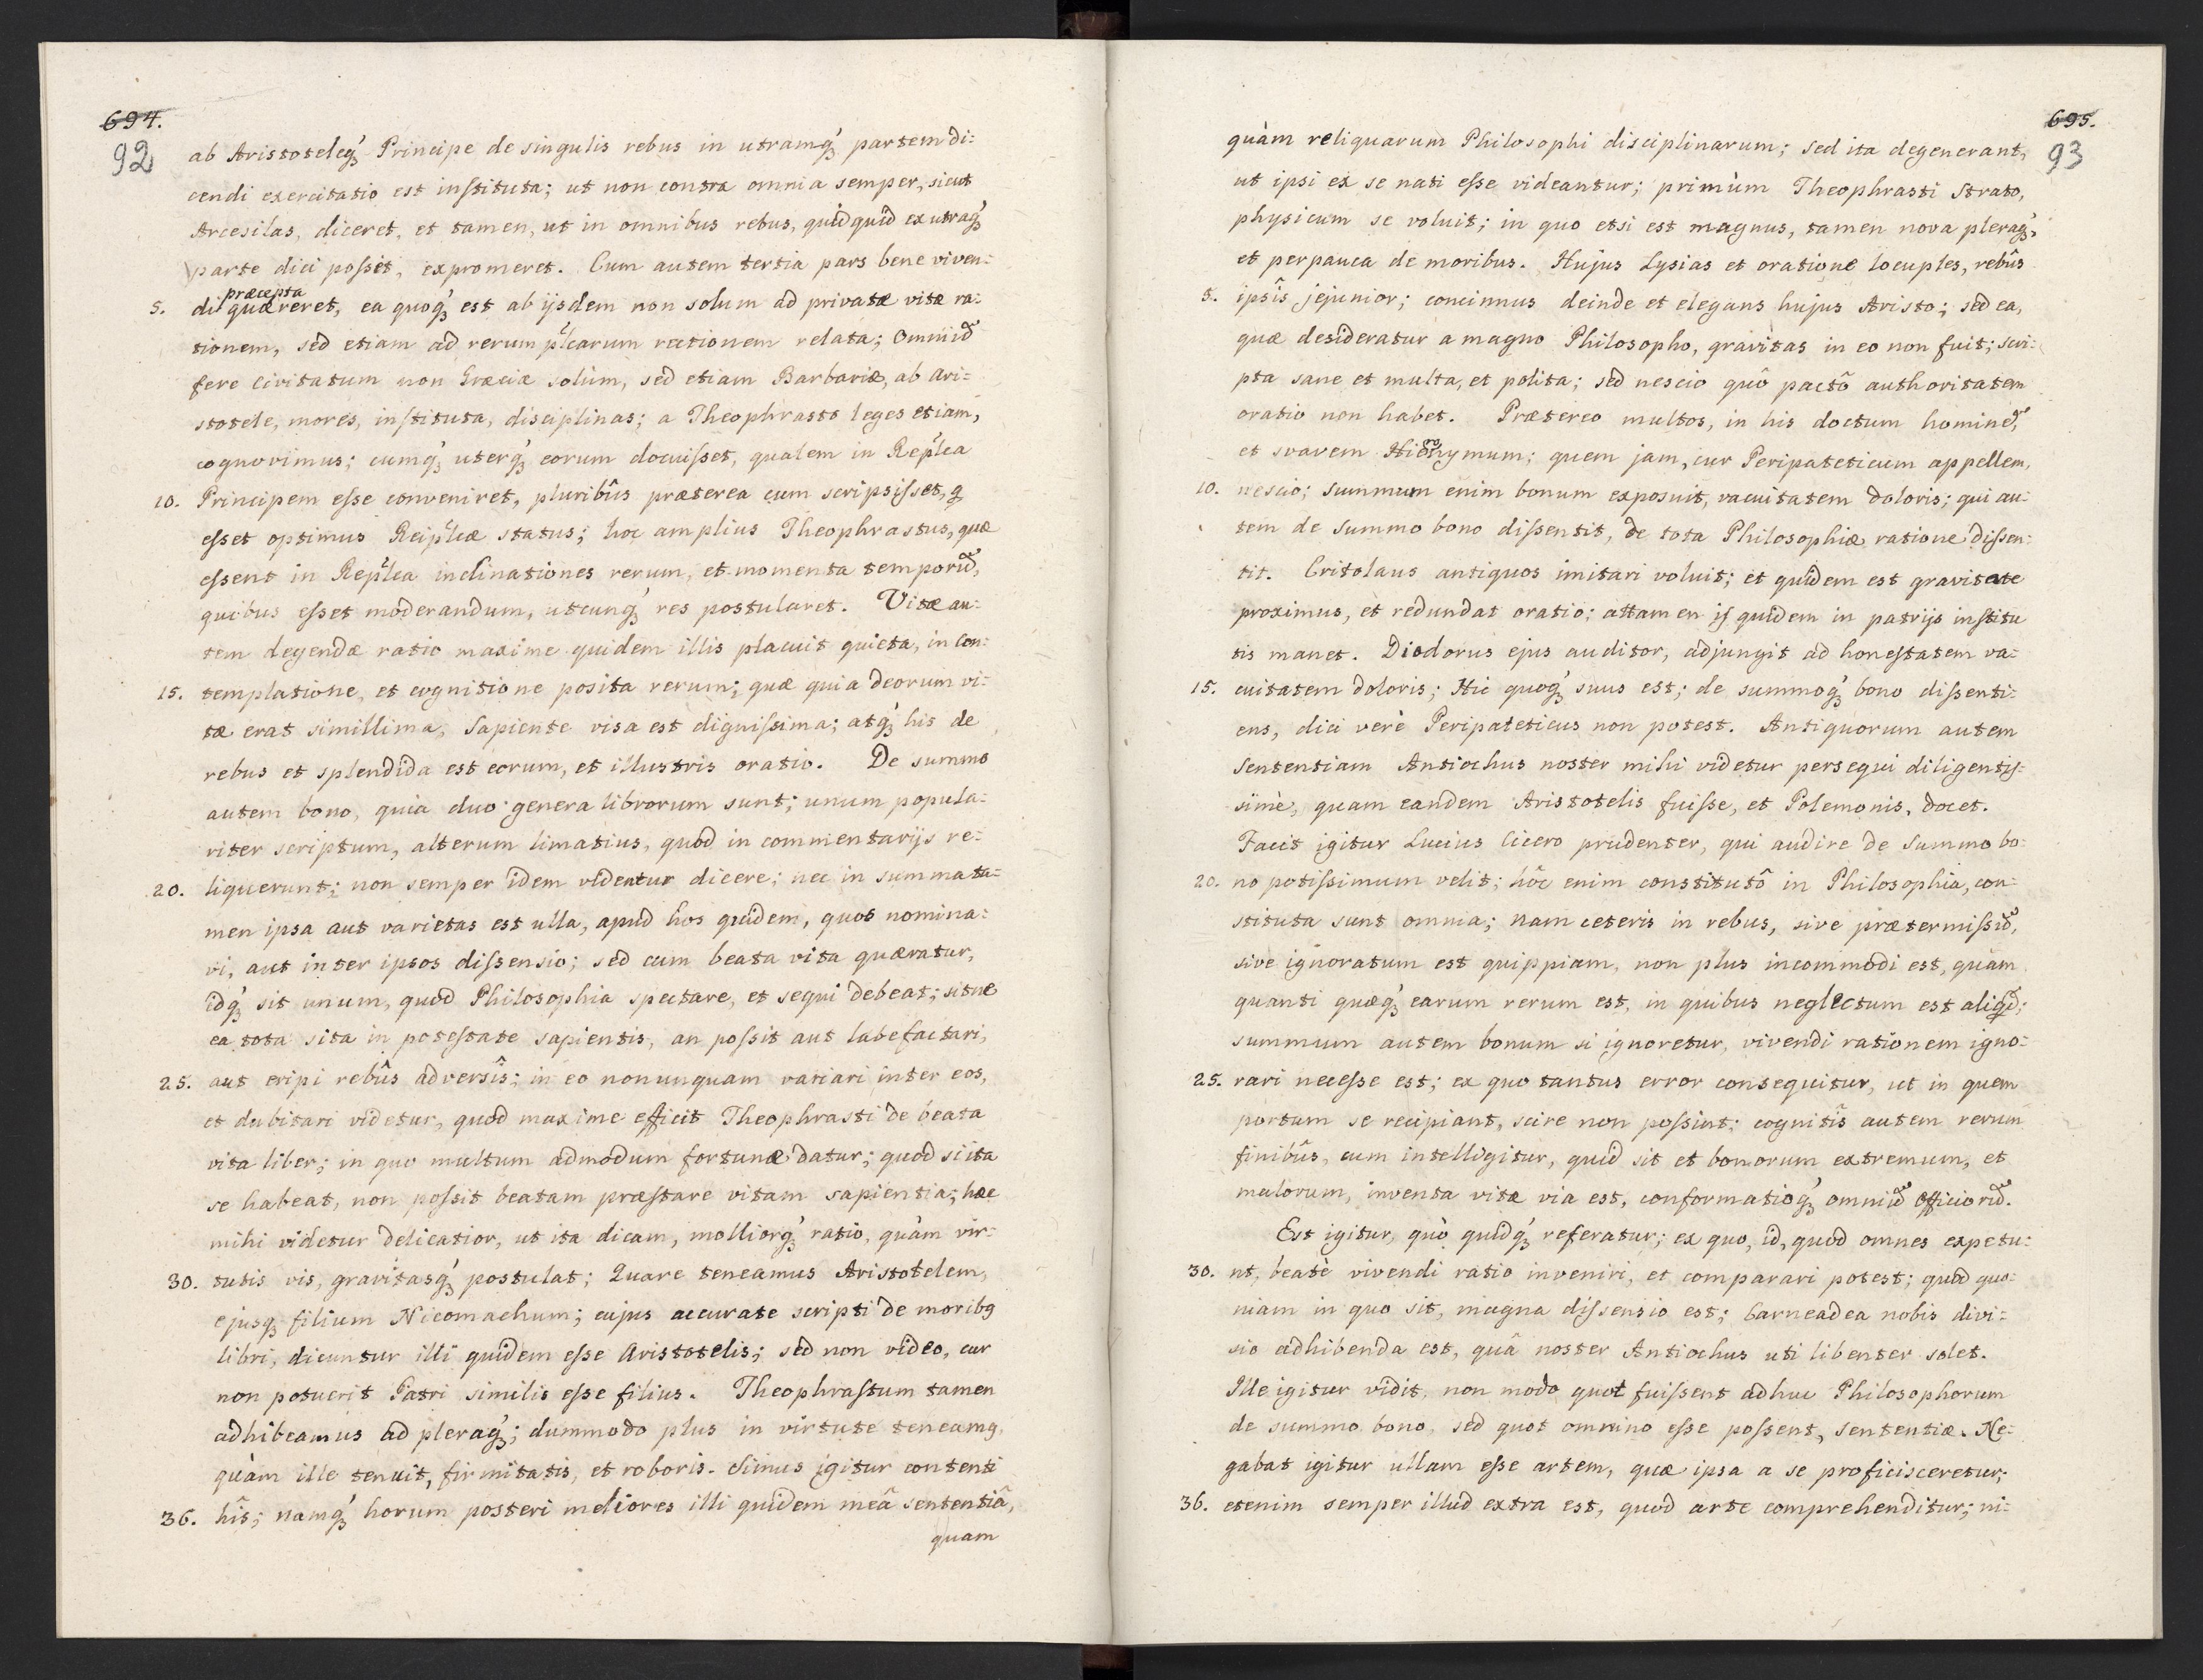 694.
92
ab Aristoteleq́ꝫ Principe de singulis rebus in utramq́ꝫ partem di:
cendi exercitatio est instituta; ut non contra omnia semper, sicut
Arcesilas, diceret, et tamen, ut in omnibus rebus, quidquid ex utraq́ꝫ
parte dici possèt, expromeret. Cum autem tertia pars bene viven:
præcepta
5. di quæreret, ea quoq́ꝫ est ab ijsdem non solum ad privatæ vitæ ra:
tionem, sed etiam ad rerum pl̃carum rectionem relata; Omniũ
fere Civitatum non Græciæ solùm, sed etiam Barbariæ, ab Ari:
stotele, mores, instituta, disciplinas; a Theophrasto leges etiam,
cognovimus; cumq́ꝫ uterq́ꝫ eorum docuisset, qualem in Repl̃ca
10. Principem esse conveniret, pluribûs præterea cum scripsisset, q
esset optimus Reipl̃cæ status; hoc amplius Theophrastus, quæ
essent in Repl̃ca inclinationes rerum, et momenta temporũ,
quibus esset moderandum, utcunq́ꝫ res postularet. Vitæ au:
tem degendæ ratio maxime quidem illis placuit quieta, in con:
15. templatione, et cognitione posita rerum; quæ quia deorum vi:
tæ erat simillima, Sapiente visa est dignissima; atq́ꝫ his de
rebus et splendida est eorum, et illustris oratio. De summo
autem bono, quia duo genera librorum sunt; unum popula:
riter scriptum, alterum limatius, quod in commentarijs re:
20. liquerunt; non semper idem videntur dicere; nec in summa ta:
men ipsa aut varietas est ulla, apud hos quidem, quos nomina:
vi, aut inter ipsos dissensio; sed cum beata vita quæratur,
idq́ꝫ sit unum, quod Philosophia spectare, et sequi debeat; sitne
ea tota sita in potestate sapientis, an possit aut labefactari,
25. aut eripi rebûs adversîs; in eo nonunquam variari inter eos,
et dubitari videtur, quod maxime efficit Theophrasti de beata
vita liber; in quo multum admodum fortunæ datur; quod si ita
se habeat, non possit beatam præstare vitam sapientia; hæc
mihi videtur delicatior, ut ita dicam, molliorq́ꝫ ratio, quàm vir:
30. tutis vis, gravitasq́ꝫ postulat; Quare teneamus Aristotelem,
ejusqꝫ filium Nicomachum; cujus accurate scripti de moribꝯ
libri, dicuntur illi quidem esse Aristotelis; sed non video, cur
non potuerit Patri similis esse filius. Theophrastum tamen
adhibeamus ad pleraq́ꝫ; dummodo plus in virtute teneamꝯ,
quàm ille tenuit, firmitatis, et roboris. Simus igitur contenti
36. hîs; namq́ꝫ horum posteri meliores illi quidem meâ sententiâ,
quam
695.
93
quàm reliquarum Philosophi disciplinarum; sed ita degenerant,
ut ipsi ex se nati esse videantur; primùm Theophrasti Strato,
physicum se voluit; in quo etsi est magnus, tamen nova pleraq́ꝫ,
et perpauca de moribus. Hujus Lysias et oratione locuples, rebûs
5. ipsîs jejunior; concinnus deinde et elegans hujus Aristo; sed ea,
quæ desideratur a magno Philosopho, gravitas in eo non fuit; scri:
pta sane et multa, et polita; sed nescio quô pactô authoritatem
oratio non habet. Prætereo multos, in his doctum hominẽ,
et svavem Hieronymum; quem jam, cur Peripateticum appellem,
10. nescio; summum enim bonum exposuit, vacuitatem doloris; qui au:
tem de summo bono dissentit, de tota Philosophiæ ratione dissen:
tit. Critolaus antiquos imitari voluit; et quidem est gravitate
proximus, et redundat oratio; attamen is quidem in patrijs institu
tis manet. Diodorus ejus auditor, adjungit ad honestatem va:
15. cuitatem doloris; Hic quoq́ꝫ suus est; de summoq́ꝫ bono dissenti:
ens, dici verè Peripateticus non potest. Antiquorum autem
sententiam Antiochus noster mihi videtur persequi diligentis:
simè, quam eandem Aristotelis fuisse, et Polemonis, docet.
Facit igitur Lucius Cicero prudenter, qui audire de summo bo:
20. no potissimum velit; hôc enim constitutô in Philosophia, con:
stituta sunt omnia; nam ceteris in rebus, sive prætermissũ,
sive ignoratum est quippiam, non plus incommodi est, quàm
quanti quæq́ꝫ earum rerum est, in quibus neglectum est aliqd;
summum autem bonum si ignoretur, vivendi rationem igno:
25. rari necesse est; ex quo tantus error consequitur, ut in quem
portum se recipiant, scire non possint; cognitîs autem rerum
finibûs, cum intelligitur, quid sit et bonorum extremum, et
malorum, inventa vitæ via est, conformatioq́ꝫ omniũ Officiorũ.
Est igitur, quò quidq́ꝫ referatur; ex quo, id, quod omnes expetu:
30. nt, beatè vivendi ratio inveniri, et comparari potest; quod quo:
niam in quo sit, magna dissensio est; Carneadea nobis divi:
sio adhibenda est, quâ noster Antiochus uti libenter solet.
Ille igitur vidit, non modo quot fuissent adhuc Philosophorum
de summo bono, sed quot omnino esse possent, sententiæ. Ne:
gabat igitur ullam esse artem, quæ ipsa a se proficisceretur;
36. etenim semper illud extra est, quod arte comprehenditur; ni: